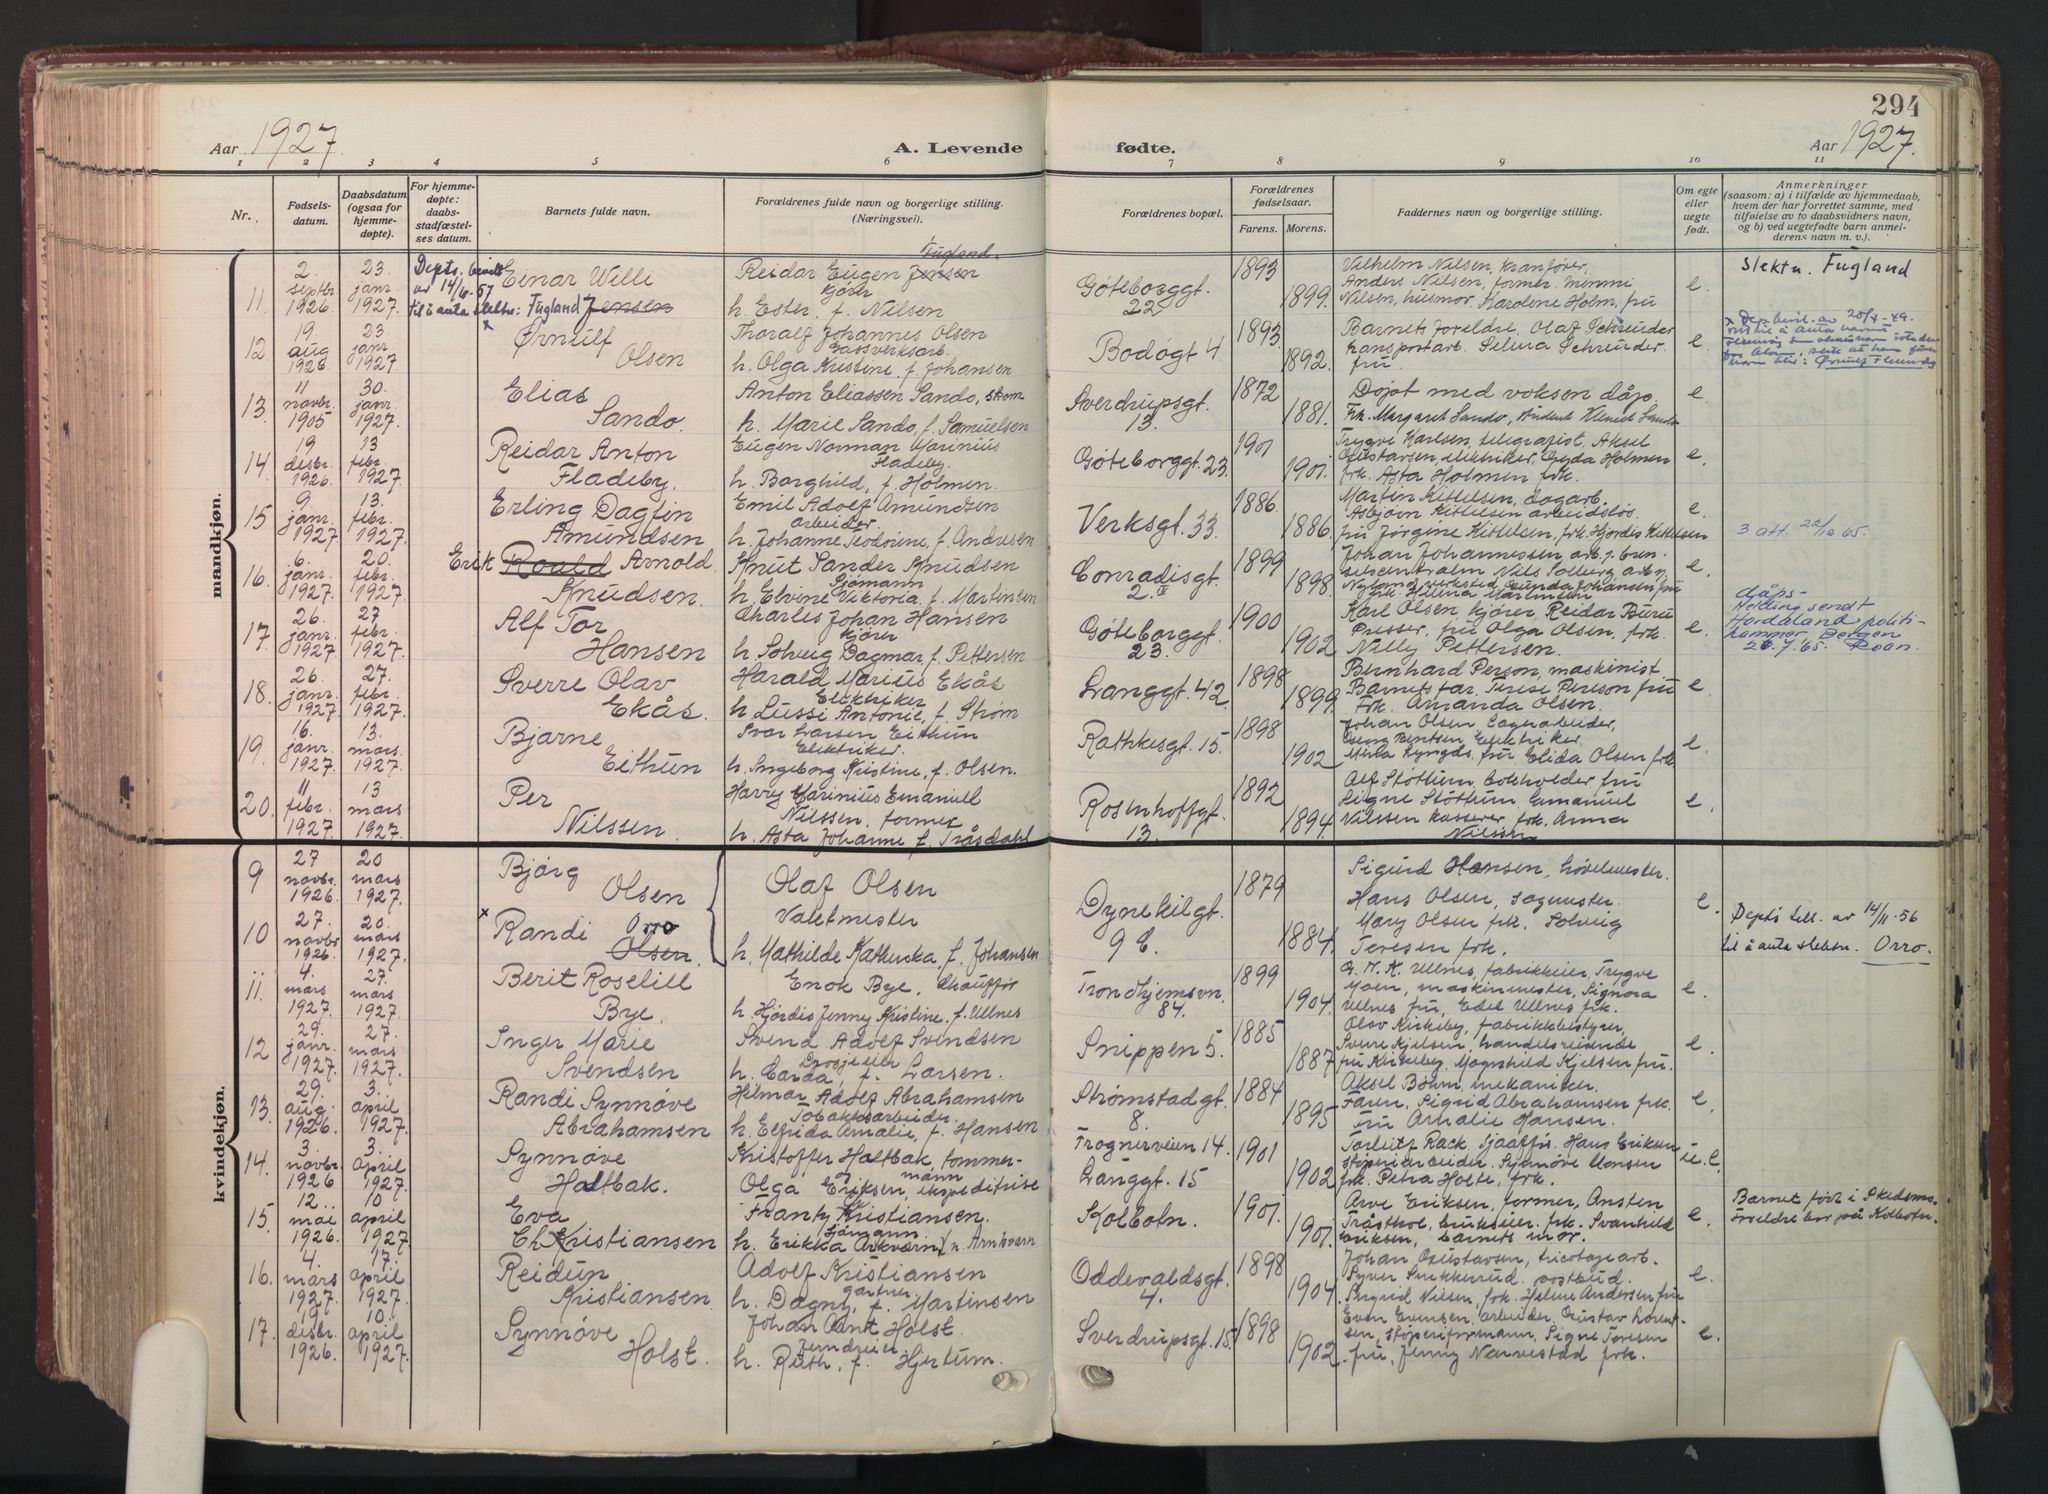 294
Aar 1927.
A. Levende fødte.
Aar 1927.
1 2 3 4 5 6 7 8 9 10 11
Nr.
Fødsels-
datum.
Daabsdatum
(ogsaa for
hjemme-
døpte).
For hjemme-
døpte:
daabs-
stadfæstel-
ses datum.
Barnets fulde navn.
Forældrenes fulde navn og borgerlige stilling.
(Næringsvei).
Forældrenes bopæl.
Forældrenes
fødselsaar.
Farens. Morens.
Faddernes navn og borgerlige stilling.
Om egte
eller
uegte
født.
Anmerkninger
(saasom: a) i tilfælde av hjemmedaab,
hvem der har forrettet samme, med
tilføielse av to daabsvidners navn,
og b) ved uegtefødte barn anmel-
derens navn m. v.).
mandkjøn.
11
2. septbr 1926
23. janr 1927.
Depts. bevilln
av 14/6-57
til å anta slektsn: Fugland
Einar Willi
Jensen
Reidar Eugen Jensen Fugland.
kjører
h. Ester, f. Nilsen
Göteborggt.
22
1893
1899.
Vilhelm Nilsen, kranfører,
Anders Nilsen, former, Mimmi
Nilsen, husmor, Karolene Holm, fru
e.
Slektn. Fugland
12
19. aug 1926
23. janr. 1927
Ørnulf
Olsen
Thoralf Johannes Olsen
Gassverksarb.
h. Olga Kristine, f. Johansen
Bodøgt 4
1893
1892.
Barnets foreldre, Olaf Schreuder
transportarb. Selma Schreuder.
fru
e
x Dep. bevil. av 20/4-49.
13.
11 novbr. 1905
30. janr. 1927.
Elias
Sando.
Anton Eliassen Sando, skom.
h. Marie Sando, f. Samuelsen
Sverdrupsgt.
13.
1872
1881.
Døpt med voksen dåp,
Frk. Margareth Sando,
e.
14.
19 desbr. 1926
13 febr. 1927
Reidar Anton
Fladeby.
Eugen Norman Marinius
Fladeby.
h. Borghild, f. Holmen.
Göteborggt. 23.
1901
1901.
Trygve Karlsen, telegrafist, Aksel
Gustavsen, elektriker, Gyda Holmen
frk. Asta Holmen, frk.
e.
15
9. janr. 1927.
13. febr. 1927.
Erling Dagfin
Amundsen
Emil Adolf Amundsen
arbeider.
h. Johanne Teodorine, f. Andresen
Verksgt. 33.
1886.
1886
Martin Kittelsen, dagarb.
Asbjørn Kittelsen arbeidsløs.
fru Jørgine Kittelsen, frk. Hjørdis Kittelsen
e.
3 att. 22/12.65.
16.
6. janr. 1927
20. febr. 1927
Erik Roald Arnold.
Knudsen.
Knut Sander Knudsen
Sjømann
h. Elvine Viktoria, f. Martinsen
Conradisgt.
2. II
1899
1898.
Johan Johannessen, arb.
Nils Solberg arb.
e.
17.
26. janr. 1927
27 febr. 1927
Alf Tor
Hansen
Charles Johan Hansen
kjører
h. Solveig Dagmar, f. Pettersen
Göteborggt.
23.
1900
1902
Karl Olsen kjører, Reidar Buru
Presser, fru Olga Olsen, frk.
Nelly Pettersen.
e.
dåps-
Melding sendt
Hordaland politi-
kammer, Bergen
2.7.65. Roan.
18.
26. janr. 1927
27. febr. 1927.
Sverre Olav
Ekås.
Harald Marius Ekås
Elektriker
h. Lussi Antonie, f. Strøm
Langgt. 42.
1898
1899.
Bernhard Person, maskinist.
Barnets far. Terese Person fru
Frk. Amanda Olsen.
e.
19.
16. janr. 1927.
13. mars 1927.
Bjarne
Eithun
Ivar Larsen Eithun
Elektriker.
h. Ingeborg Kristine, f. Olsen.
Rathkesgt. 15.
1898
1902
Johan Olsen Lagerarbeider,
Georg Berntsen, Elektriker
Milla Lyngås, fru Elida Olsen frk.
e.
20.
11 febr. 1927.
13 mars 1927.
Per
Nilssen.
Harry Marinius Emaniel
Nilssen, former
h. Asta Johanne f. Tråsdahl
Rosenhoffgt.
13.
1892
1894.
Alf Støttum, bokholder, fru
Signe Støttum, Emanuel
Nilssen kasserer frk. Anna
Nilssen
e.
kvindekjøn.
9
27 novbr. 1926
20 mars 1927.
Bjørg
Olsen
Olaf Olsen
Valsmester
h. Mathilde Kathinka, f. Johansen
Dynekilgt.
9 E.
1879
1884.
Sigurd Hansen, høvelmester.
Hans Olsen, sagmester.
Mary Olsen frk. Solveig
Teresen frk.
e.
10
27 novbr 1926.
20. mars 1927.
x Randi Orro
Olsen.
Depts till. av 14/11-56
til å anta slektsn. Orro.
11.
4. mars 1927.
27. mars 1927
Berit Roselill
Bye.
Enok Bye, Chauffør
h. Hjørdis Jenny Kristine, f. Ullnes
Trondhjemsvn.
84.
1899
1904.
O. M. K. Ullnes, fabrikkeier, Trygve
Moen, maskinmester, Signora
Ullnes fru, Edel Ullnes frk.
e.
12
29. janr. 1927.
27. mars 1927.
Inger Marie
Svendsen
Svend Adolf Svendsen
Drosjeeier
h. Carda, f. Larsen.
Snippen 5.
1885
1887
Olav Kirkeby, fabrikkbestyrer,
Sverre Kjelsen, handelsreisende
fru Kirkeby, Magnhild Kjelsen fru.
e.
13.
29. aug. 1926.
3. april 1927.
Randi Synnøve
Abrahamsen
Hilmar Adolf Abrahamsen
Tobakksarbeider.
h. Elfrida Amalie, f. Hansen
Strømstadgt.
8.
1884
1895
Aksel Bøhm, mekaniker.
Faren, Sigrid Abrahamsen frk.
Fru Athalie Hansen.
e.
14.
3. novbr. 1926
3. april 1927.
Synnøve
Haltbak.
Kristoffer Haltbak, tømmer-
mann
og
Olga Eriksen, ekspeditrise
Frognerveien 14.
Langgt. 15
1901
1902
Rack sjåfør, Hans Eriksen
støperiarbeider. Synnøve Monsen
frk. Petra Holte, frk.
u.e.
15.
12. mai 1926.
10 april 1927
Eva
Kristiansen
Frantz Kristiansen.
Sjømann
h. Erikka Arkværn n. Arnkværn
Kolbotn.
1901.
1901
Arve Eriksen, former, Ansten
Tråsthol, brukseier. frk. Svanhild
Eriksen, barnets mor.
e.
Barnet født i Skedsmo.
Foreldre bor på Kolbotn.
16.
4. mars 1927.
17. april 1927.
Reidun
Kristiansen.
Adolf Kristiansen
gartner
h. Dagny, f. Martinsen
Oddevaldsgt.
4.
1898
1904
Johan Gustavsen, tricotagearb.
Syver Sukkerud, postbud.
Ingrid Nilsen, frk. Helene Andersen fru
e.
17.
19. desbr. 1926.
10. april 1927.
Synnøve
Holst.
Johan Arnt Holst.
h. Ruth, f. Hjertum.
Sverdrupsgt. 15
1898
1902
Even Evensen, arbeider, Gustav Lorent-
sen, støperiformann, Signe Teresen
fru, Jenny Narvestad frk.
e.